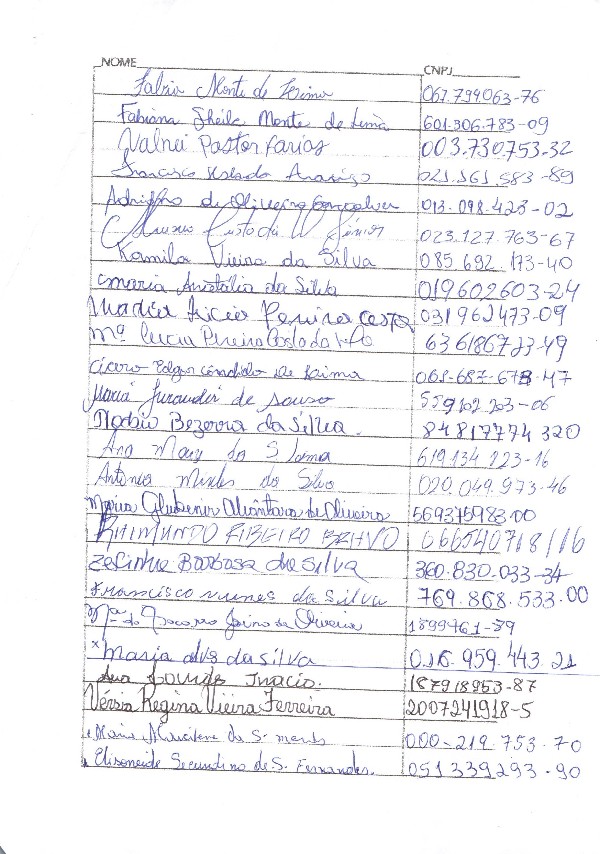 NOME CNPJ
Fabio Monte de Lima 067.799.063-76
Fabiana Sheila Monte de Lima 601.306.783-09
Valnei Pastor farias 003.730.753-32
Francisco 021.161.583-89
de Oliveira Gonçalves 013.098.423-02
Custodio Júnior 023.127.763-67
Kamila Vieira da Silva 085.692.173-40
Maria Anatália da Silva 019602603-24
Maria Lucia Pereira Costa 031962473-09
Mª Lucia Pereira Costa do 636186723-49
Cicero Edgar Cândido de Lima 061-687-673-47
Maria Jurandir de Souso 559102203-06
Bezerra da Silva. 84817774320
Ana Mary da S Lama 619134223-16
Antonia Mendes da Silva 020.049.973-46
Maria Alcântara de Oliveira 569375983-00
RAIMUNDO RIBEIRO BRAVO 066540718/16
Zefinha Barbosa da Silva 360.830.033-34
Francisco nunes da Silva 769.868.533.00
Mª do Socorro de Oliveira 1899461-89
x Maria alves da silva 016.959.443.21
Ana Lourdes Inacio. 187918953-87
Regina Vieira Ferreira 2007241918-5
Maria da S. 000-219.753-70
Elisoneide Secundino de S. Fernandes. 051339293-90